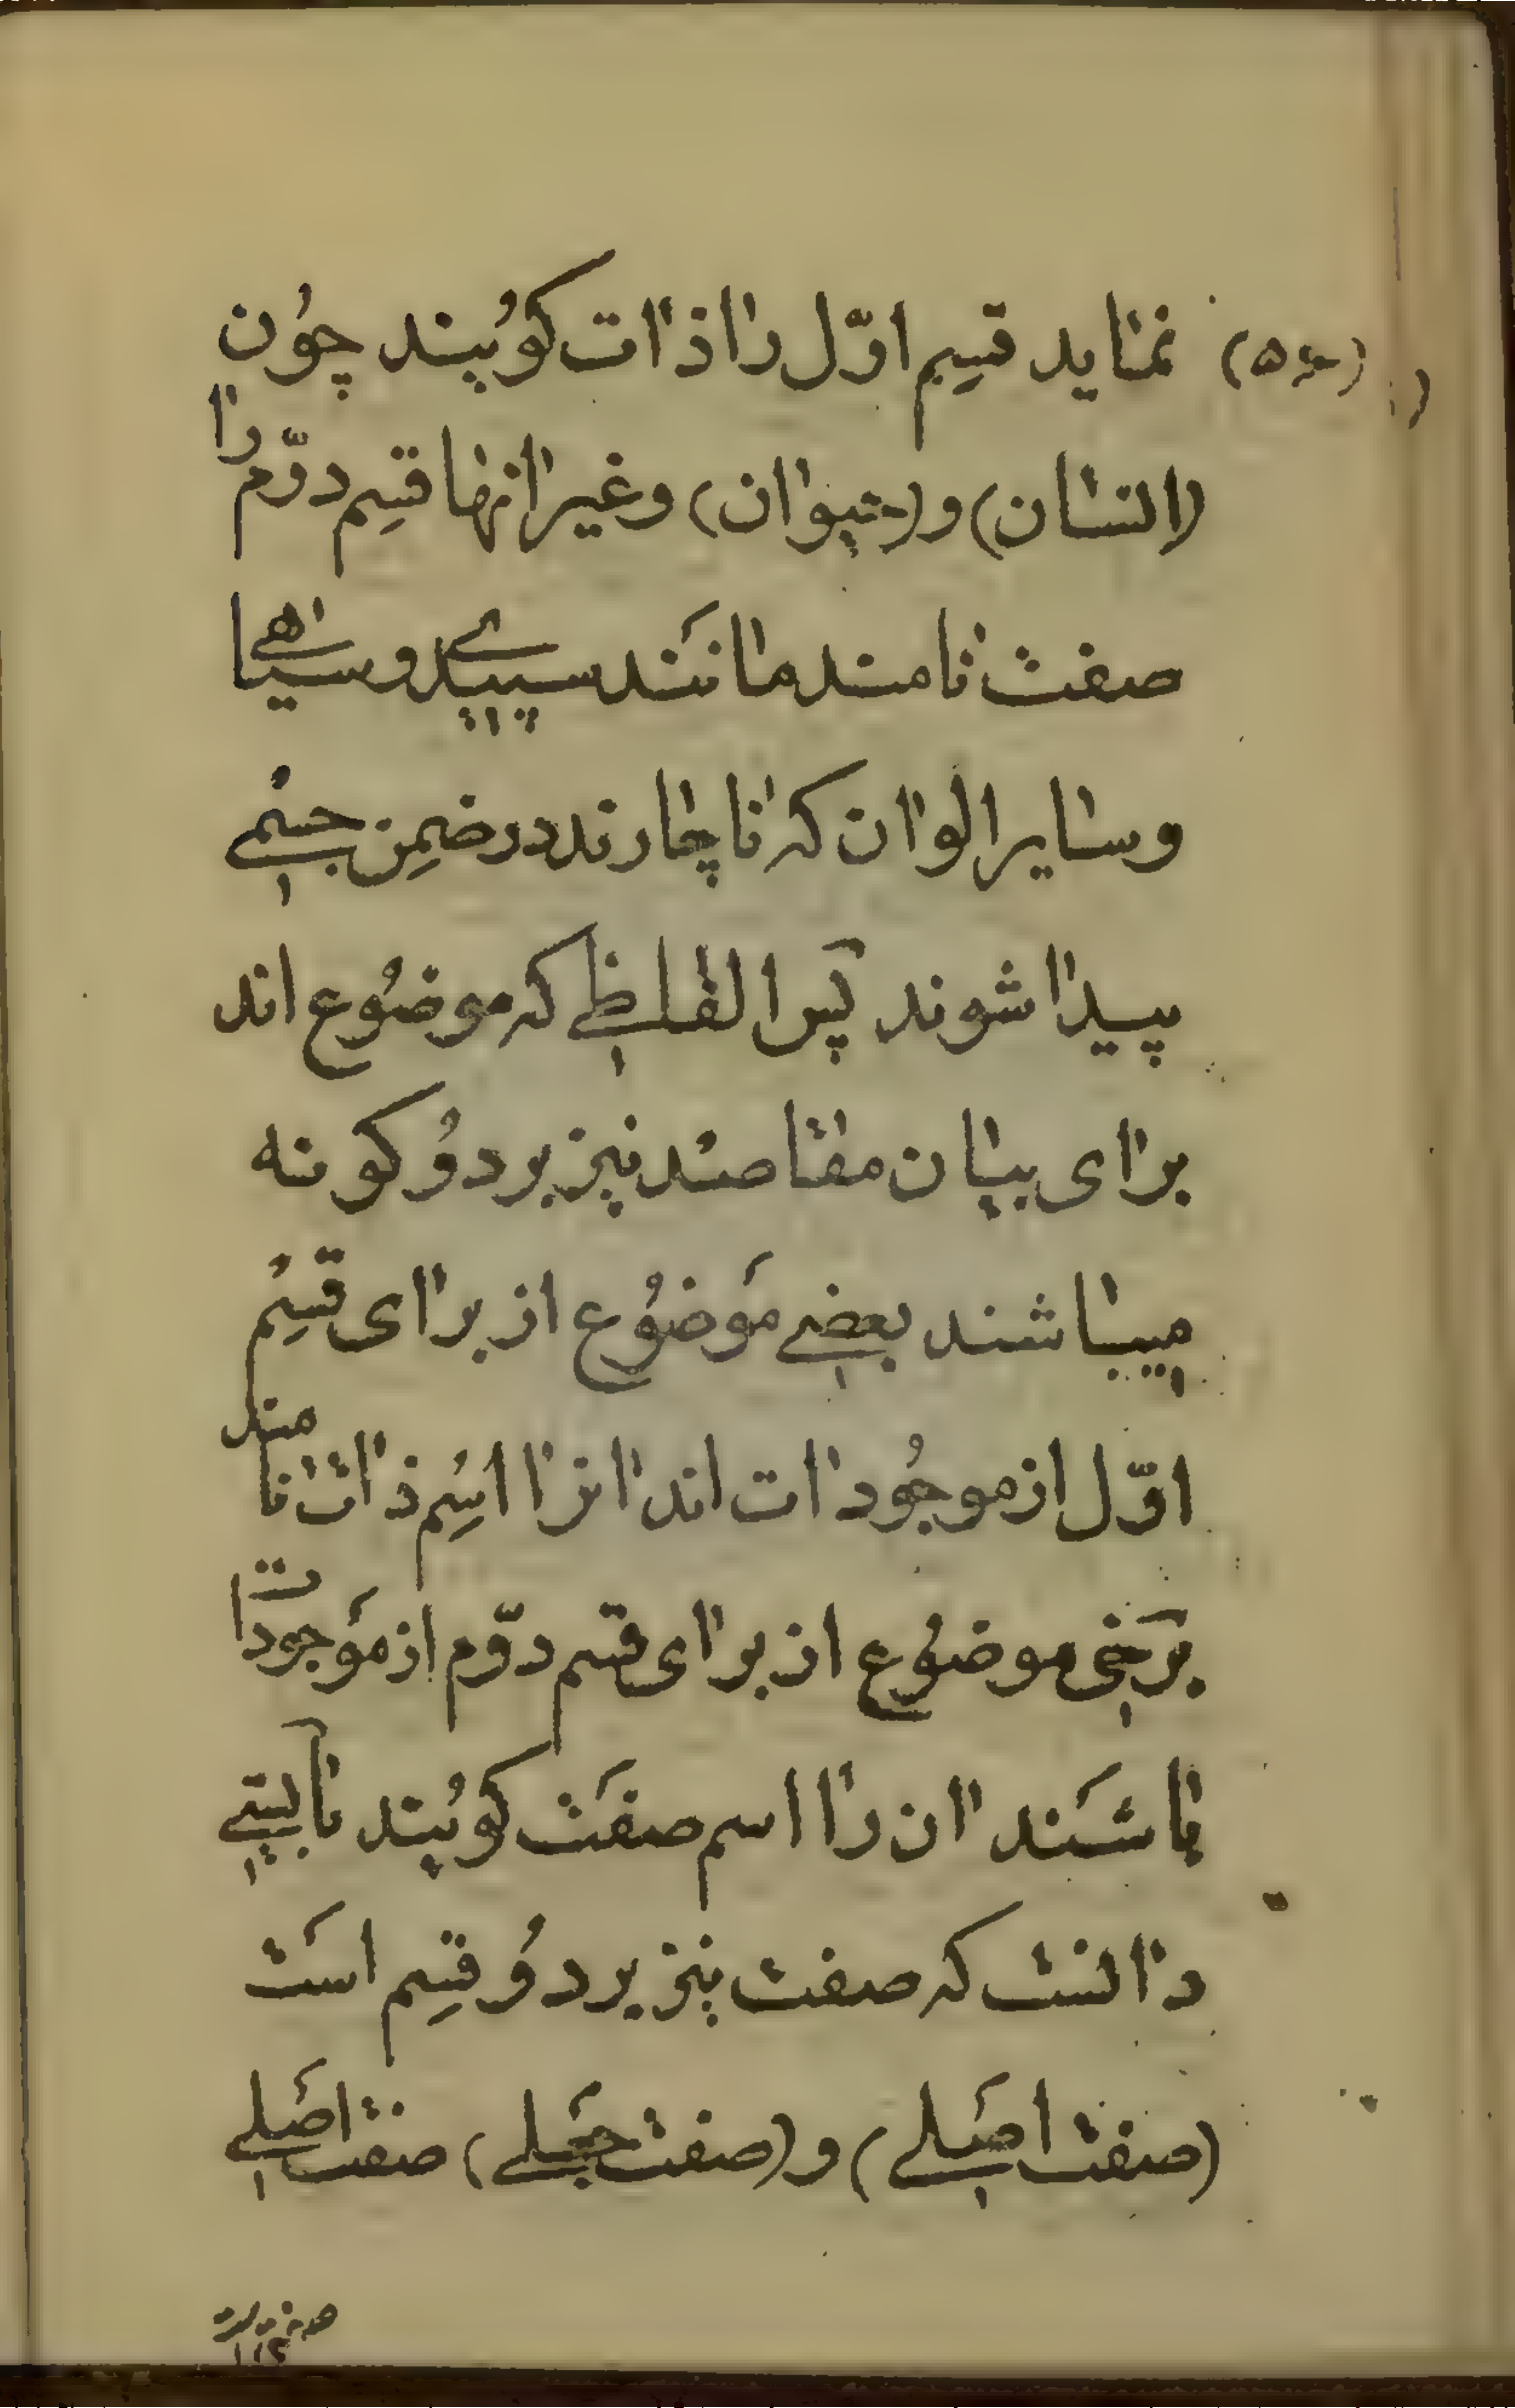 (۵۶) نماید قسم اوّل را ذات کوُیند چوُن
(انسان) و (حیوان) وغیر انها قسِم دوّم را
صفت نامند مانَند سپیدے و سیاهے
و سایر الوان که ناچارند در ضمِن جسْمے
پیدا شوند پَس الفاظے که موضوُع اند
برای بیان مقاصد نیز بر دوُ کونه
میباشند بعضے مَوضوُع از برای قسِم
اوّل از موجوُدات اند انرا اسِم ذات نامند
برَخی موضوُع از برای قسم دوّم از مَوجودات
باشَند ان را اسم صفَت کوُیند بایستے
دانست که صفت نیز بر دوُ قسِم است
(صفت اصَلے) و (صفت جَعلے) صفت اصَلے